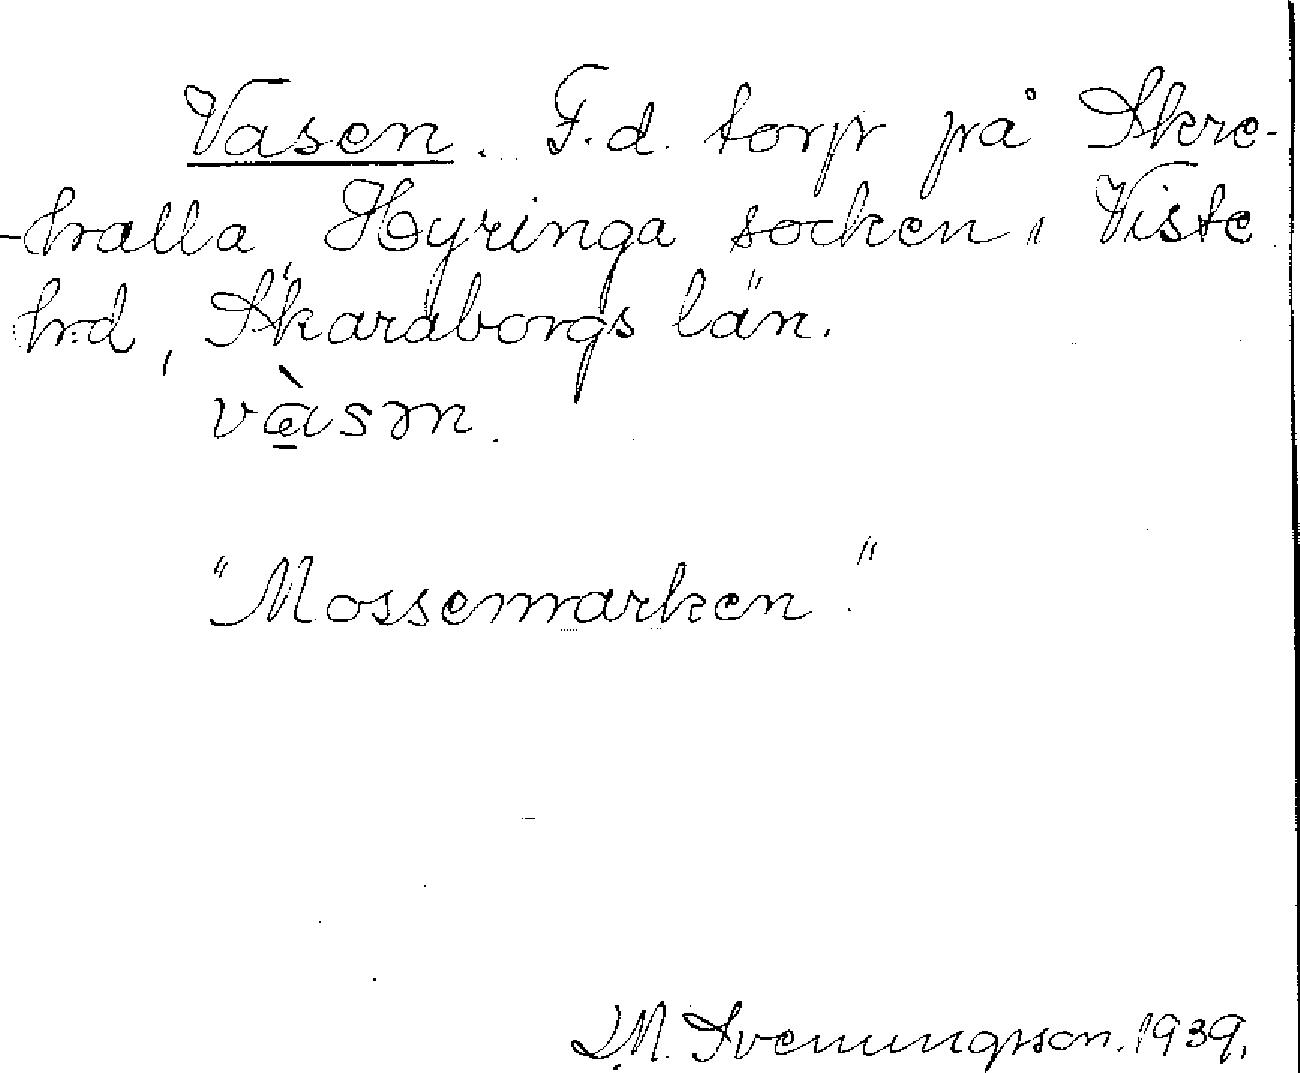 Vasen. F.d. torp på Skre-
-halla, Hyringa socken, Viste
hd, Skaraborgs län.
vàsən.
"Mossemarken."
D.M. Svenungsson. 1939.